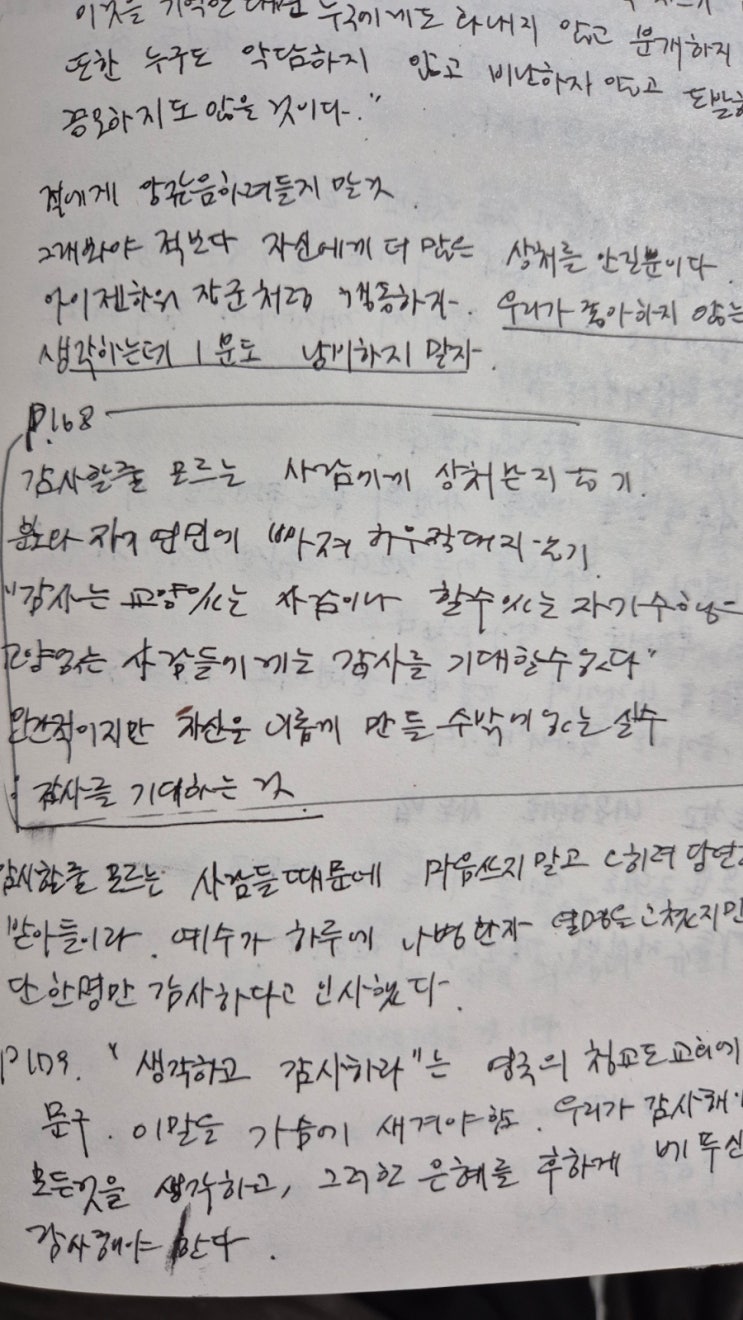 이것을 기억한다면 누구에게도 화내지 않고 분개하지
또한 누구도 악담하지 않고 비난하지 않고
증오하지도 않을 것이다."
적에게 앙갚음하려들지 말것.
그래봐야 적보다 자신에게 더 많은 상처를 안길뿐이다.
아이젠하워 장군처럼 행동하자. 우리가 좋아하지 않는
생각하는데 1분도 낭비하지 말자.
P.168
감사할줄 모르는 사람에게 상처받지 않기.
분노와 자기 연민에 빠져 허우적대지 않기.
"감사는 교양있는 사람이나 할수 있는 자기수양
교양없는 사람들에게는 감사를 기대할수 없다"
인간적이지만 자신을 괴롭게 만들 수밖에 없는 실수
: 감사를 기대하는 것.
감사할줄 모르는 사람들때문에 마음쓰지 말고 당연
받아들이라. 예수가 하루에 나병환자 열명을 고쳤지만
단 한명만 감사하다고 인사했다.
"생각하고 감사하라"는 영국의 청교도 교회에
문구. 이말을 가슴에 새겨야함. 우리가 감사해
모든것을 생각하고, 그러한 은혜를 후하게 베푸신
감사해야 한다.